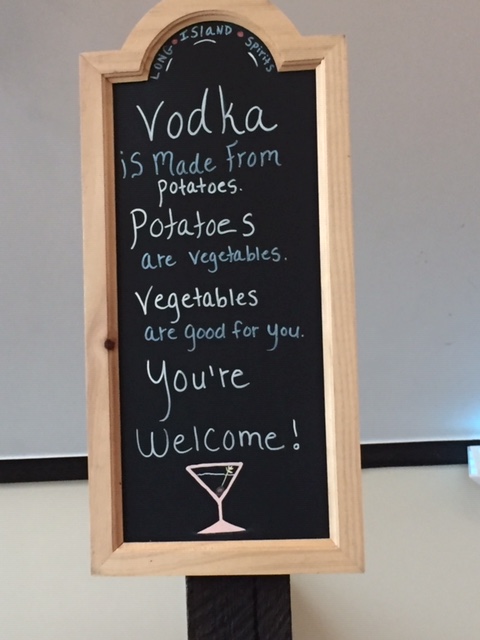 LONG • ISLAND • Spirits
Vodka
is Made From
potatoes.
Potatoes
are vegetables.
Vegetables
are good for you.
You're
Welcome!